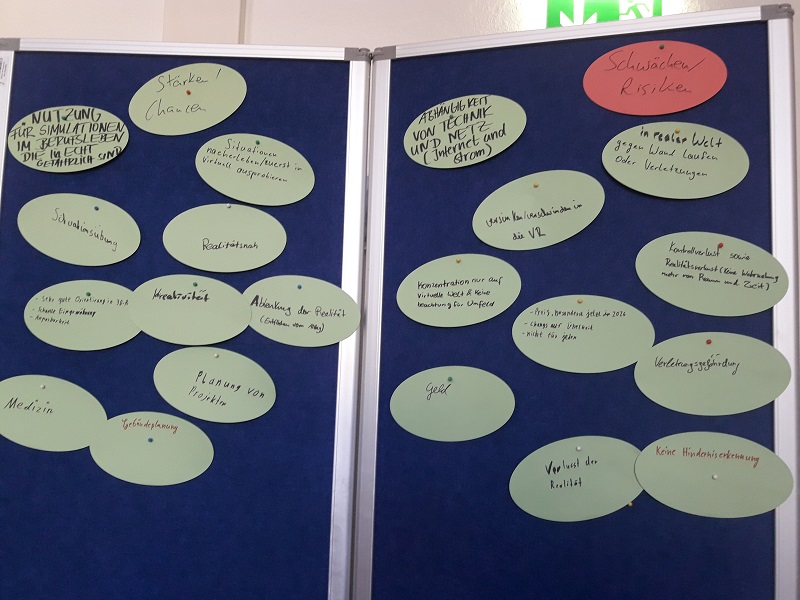 Stärken!
Chancen
NUTZUNG
FÜR SIMULATIONEN
IM BERUFSLEBEN
DIE IN ECHT
GEFÄHRLICH SIND
Situationen
nacherleben/zuerst in
Virtuell ausprobieren
Situationsübung
Realitätsnah
- Sehr gute Orientierung in
Kreativität
Ablenkung der Realität
(Entfliehen vom Alltag)
Planung von
Projekten
Medizin
Gebäudeplanung
Schwächen/
Risiken
ABHÄNGIGKEIT
VON TECHNIK
UND NETZ
(Internet und
Strom)
in realer Welt
gegen Wand laufen
oder Verletzungen
versinken/verschwinden in
die VR
Kontrollverlust sowie
Realitätsverlust (Keine Wahrnehmung
mehr von Raum und Zeit)
Konzentration nur auf
Virtuelle Welt & Keine
beachtung für Umfeld
- Preis, besonders jetzt der 2026
- nicht für jeden
Verletzungsgefährdung
Geld
Verlusst der
Realität
Keine Hinderniserkennung